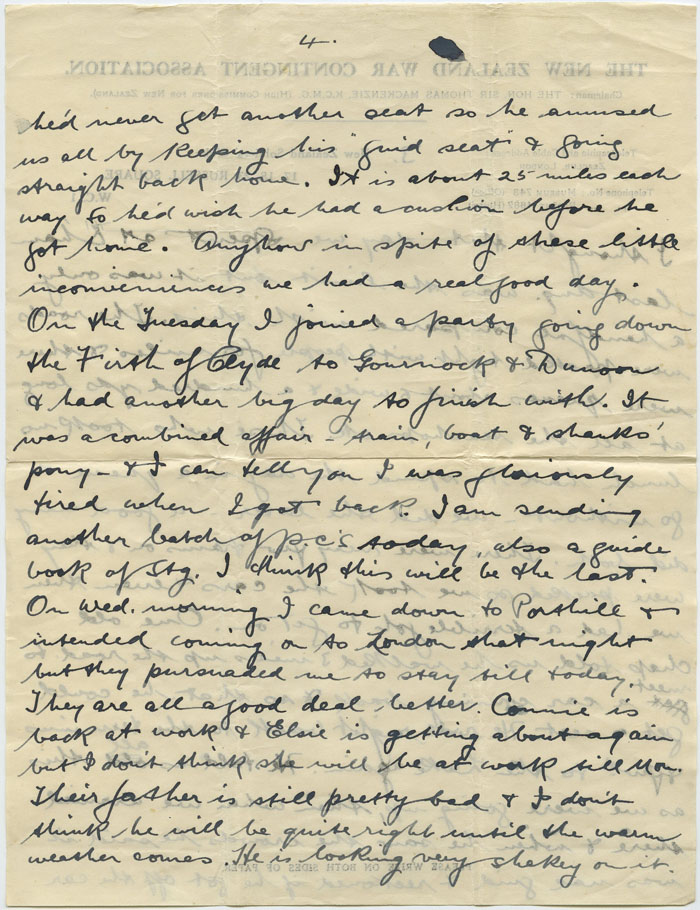 4.
he'd never get another seat so he amused
us all by keeping his "guid seat" & going
straight back home. It is about 25 miles each
way so he'd wish he had a cushion before he
got home. Anyhow in spite of these little
inconveniences we had a real good day.
On the Tuesday I joined a party going down
the Firth of Clyde to Gournock & Dunoon
& had another big day to finish with. It
was a combined affair - train, boat & shanks'
pony - & I can tell you I was gloriously
tired when I got back. I am sending
another batch of pc's today, also a guide
book of Stg. I think this will be the last.
On Wed. morning I came down to Porthill &
intended coming on to London that night
but they pursuaded me to stay till today.
They are all a good deal better. Connie is
back at work & Elsie is getting about again
but I don't think she will be at work till Mon.
Their father is still pretty bad & I don't
think he will be quite right until the warm
weather comes. He is looking very shakey on it.
THE NEW ZEALAND WAR CONTINGENT ASSOCIATION.
Chairman: THE HON SIR THOMAS MACKENZIE, K.C.M.G.
PLEASE WRITE ON BOTH SIDES OF PAPER.